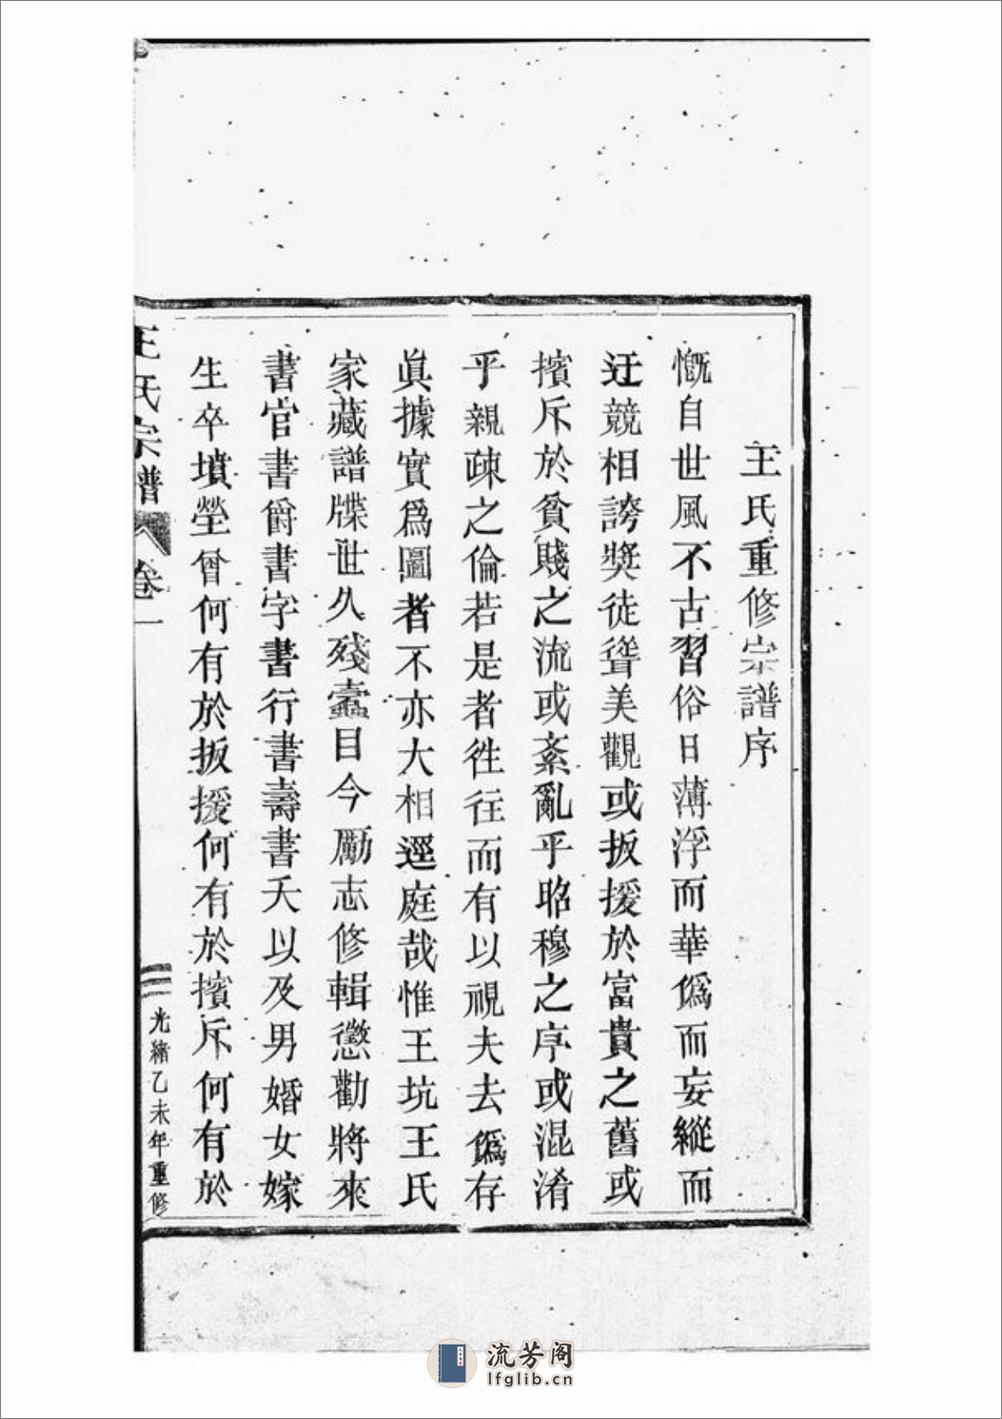 王氏重修宗譜序
慨自世風不古習俗日薄浮而華僞而妄縱而
迂競相誇獎徒聳美觀或扳援於富貴之舊或
擯斥於貧賤之流或紊亂乎昭穆之序或混淆
乎親疎之倫若是者徃往而有以視夫去僞存
眞據實爲圖者不亦大相逕庭哉惟王坑王氏
家藏譜牒世久殘蠹目今勵志修輯懲勸將來
書官書爵書字書行書壽書夭以及男婚女嫁
生卒墳塋曾何有於扳援何有於擯斥何有於
王氏宗譜 卷一
光緒乙未年重修
流芳阁
lfglib.cn